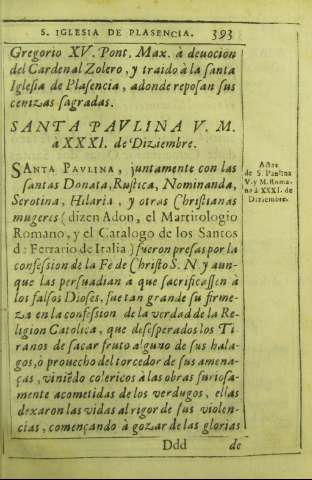 S. IGLESIA DE PLASENCIA. 393
Gregorio XV. Pont. Max. à deuocion
del Cardenal Zolero, y traido à la santa
Iglesia de Plasencia, adonde reposan sus
cenizas sagradas.
SANTA PAVLINA V. M.
à XXXI. de Diziembre.
SANTA PAVLINA, juntamente con las
santas Donata, Rustica, Nominanda,
Serotina, Hilaria, y otras Christianas
mugeres (dizen Adon, el Martirologio
Romano, y el Catalogo de los Santos
d: Ferrario de Italia) fueron presas por la
confession de la Fè de Christo S. N. y aun-
que las persuadian a que sacrificassen à
los falsos Dioses, fue tan grande su firme-
za en la confession de la verdad de la Re-
ligion Catolica, que desesperados los Ti
ranos de sacar fruto alguno de sus hala-
gos, ò prouecho del torcedor de sus amena-
ças, viniẽdo colericos à las obras furiosa-
mente acometidas de los verdugos, ellas
dexaron las vidas al rigor de sus violen-
cias, començando à gozar de las glorias
Ddd de
Actas
de S. Paulina
V. y M. Roma-
na à XXXI. de
Diziembre.